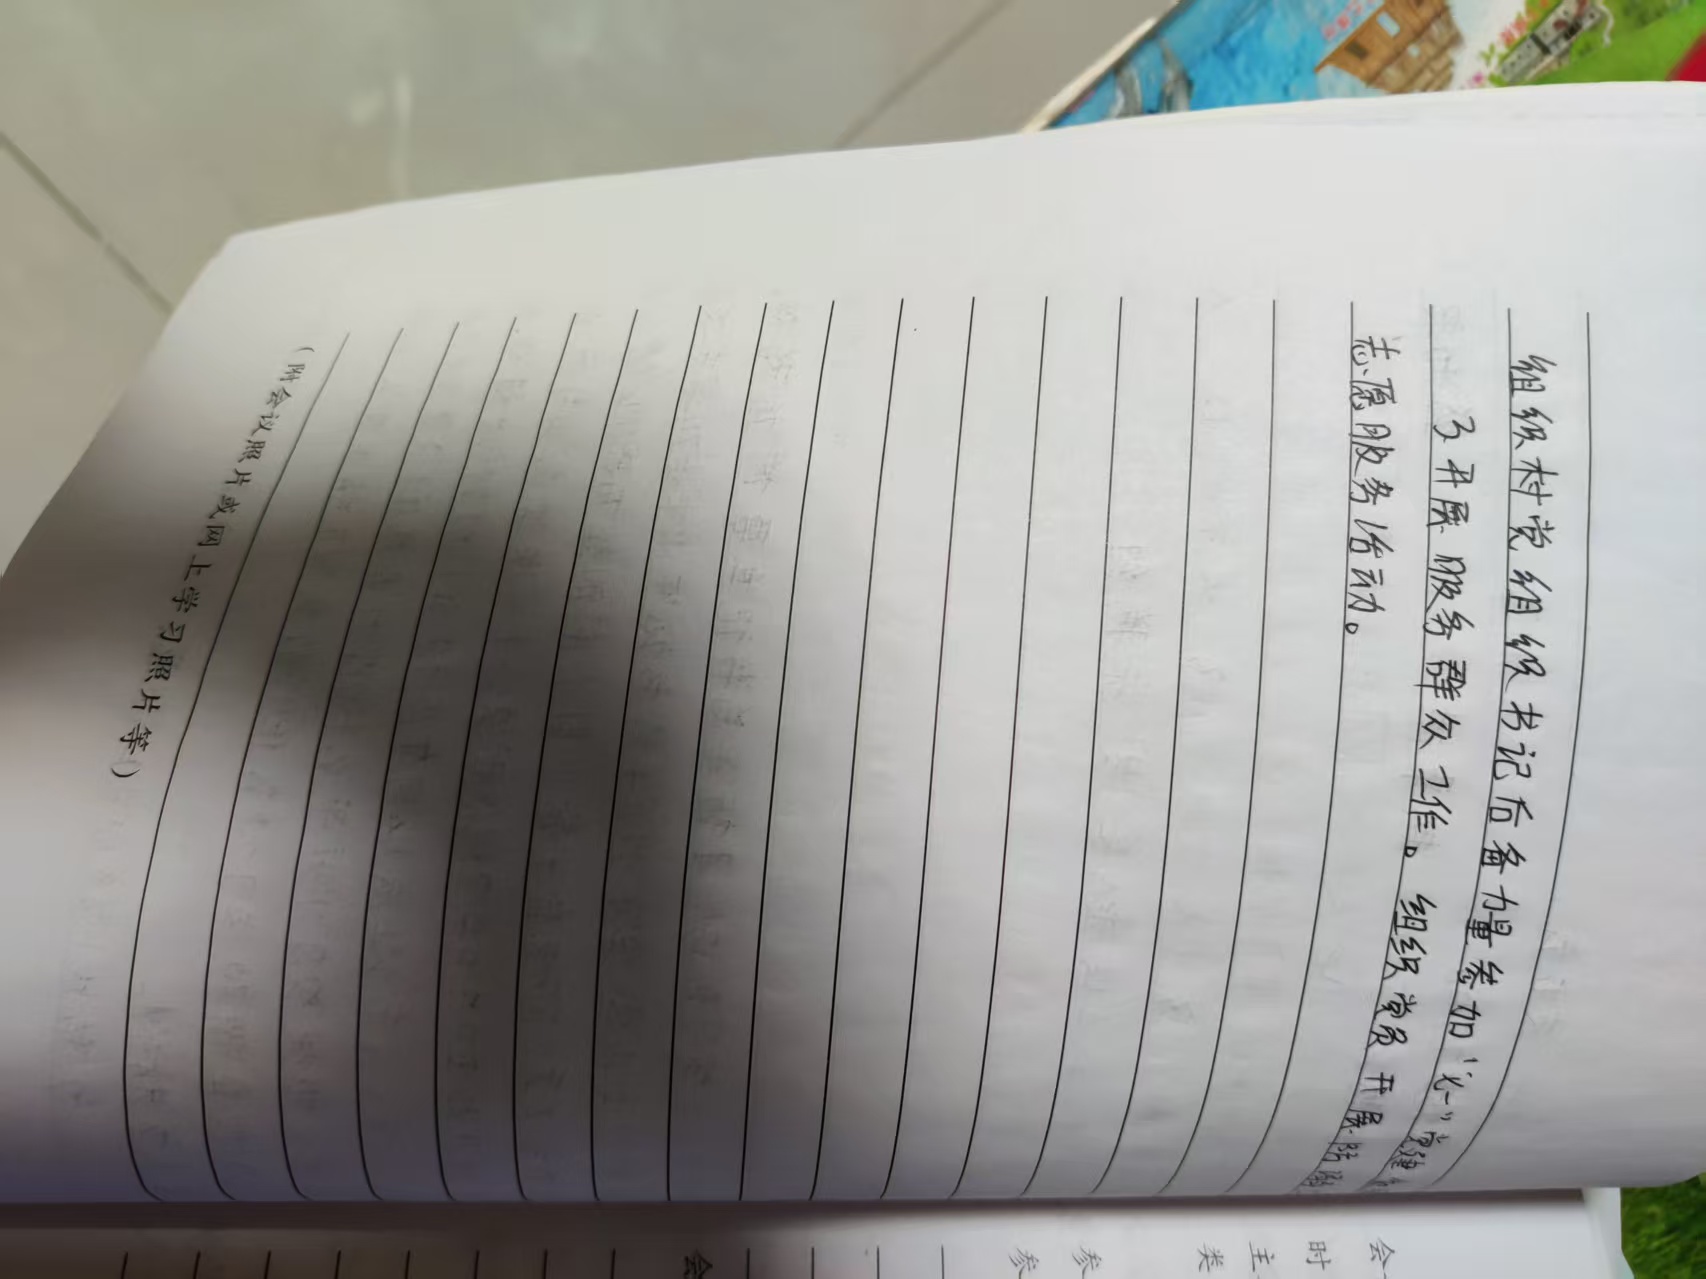 组织村党组织书记后备力量参加“七一”党建
3、开展服务群众工作。组织党员开展防溺
志愿服务活动。
（附会议照片或网上学习照片等）
会
时
主
类
参
参
会